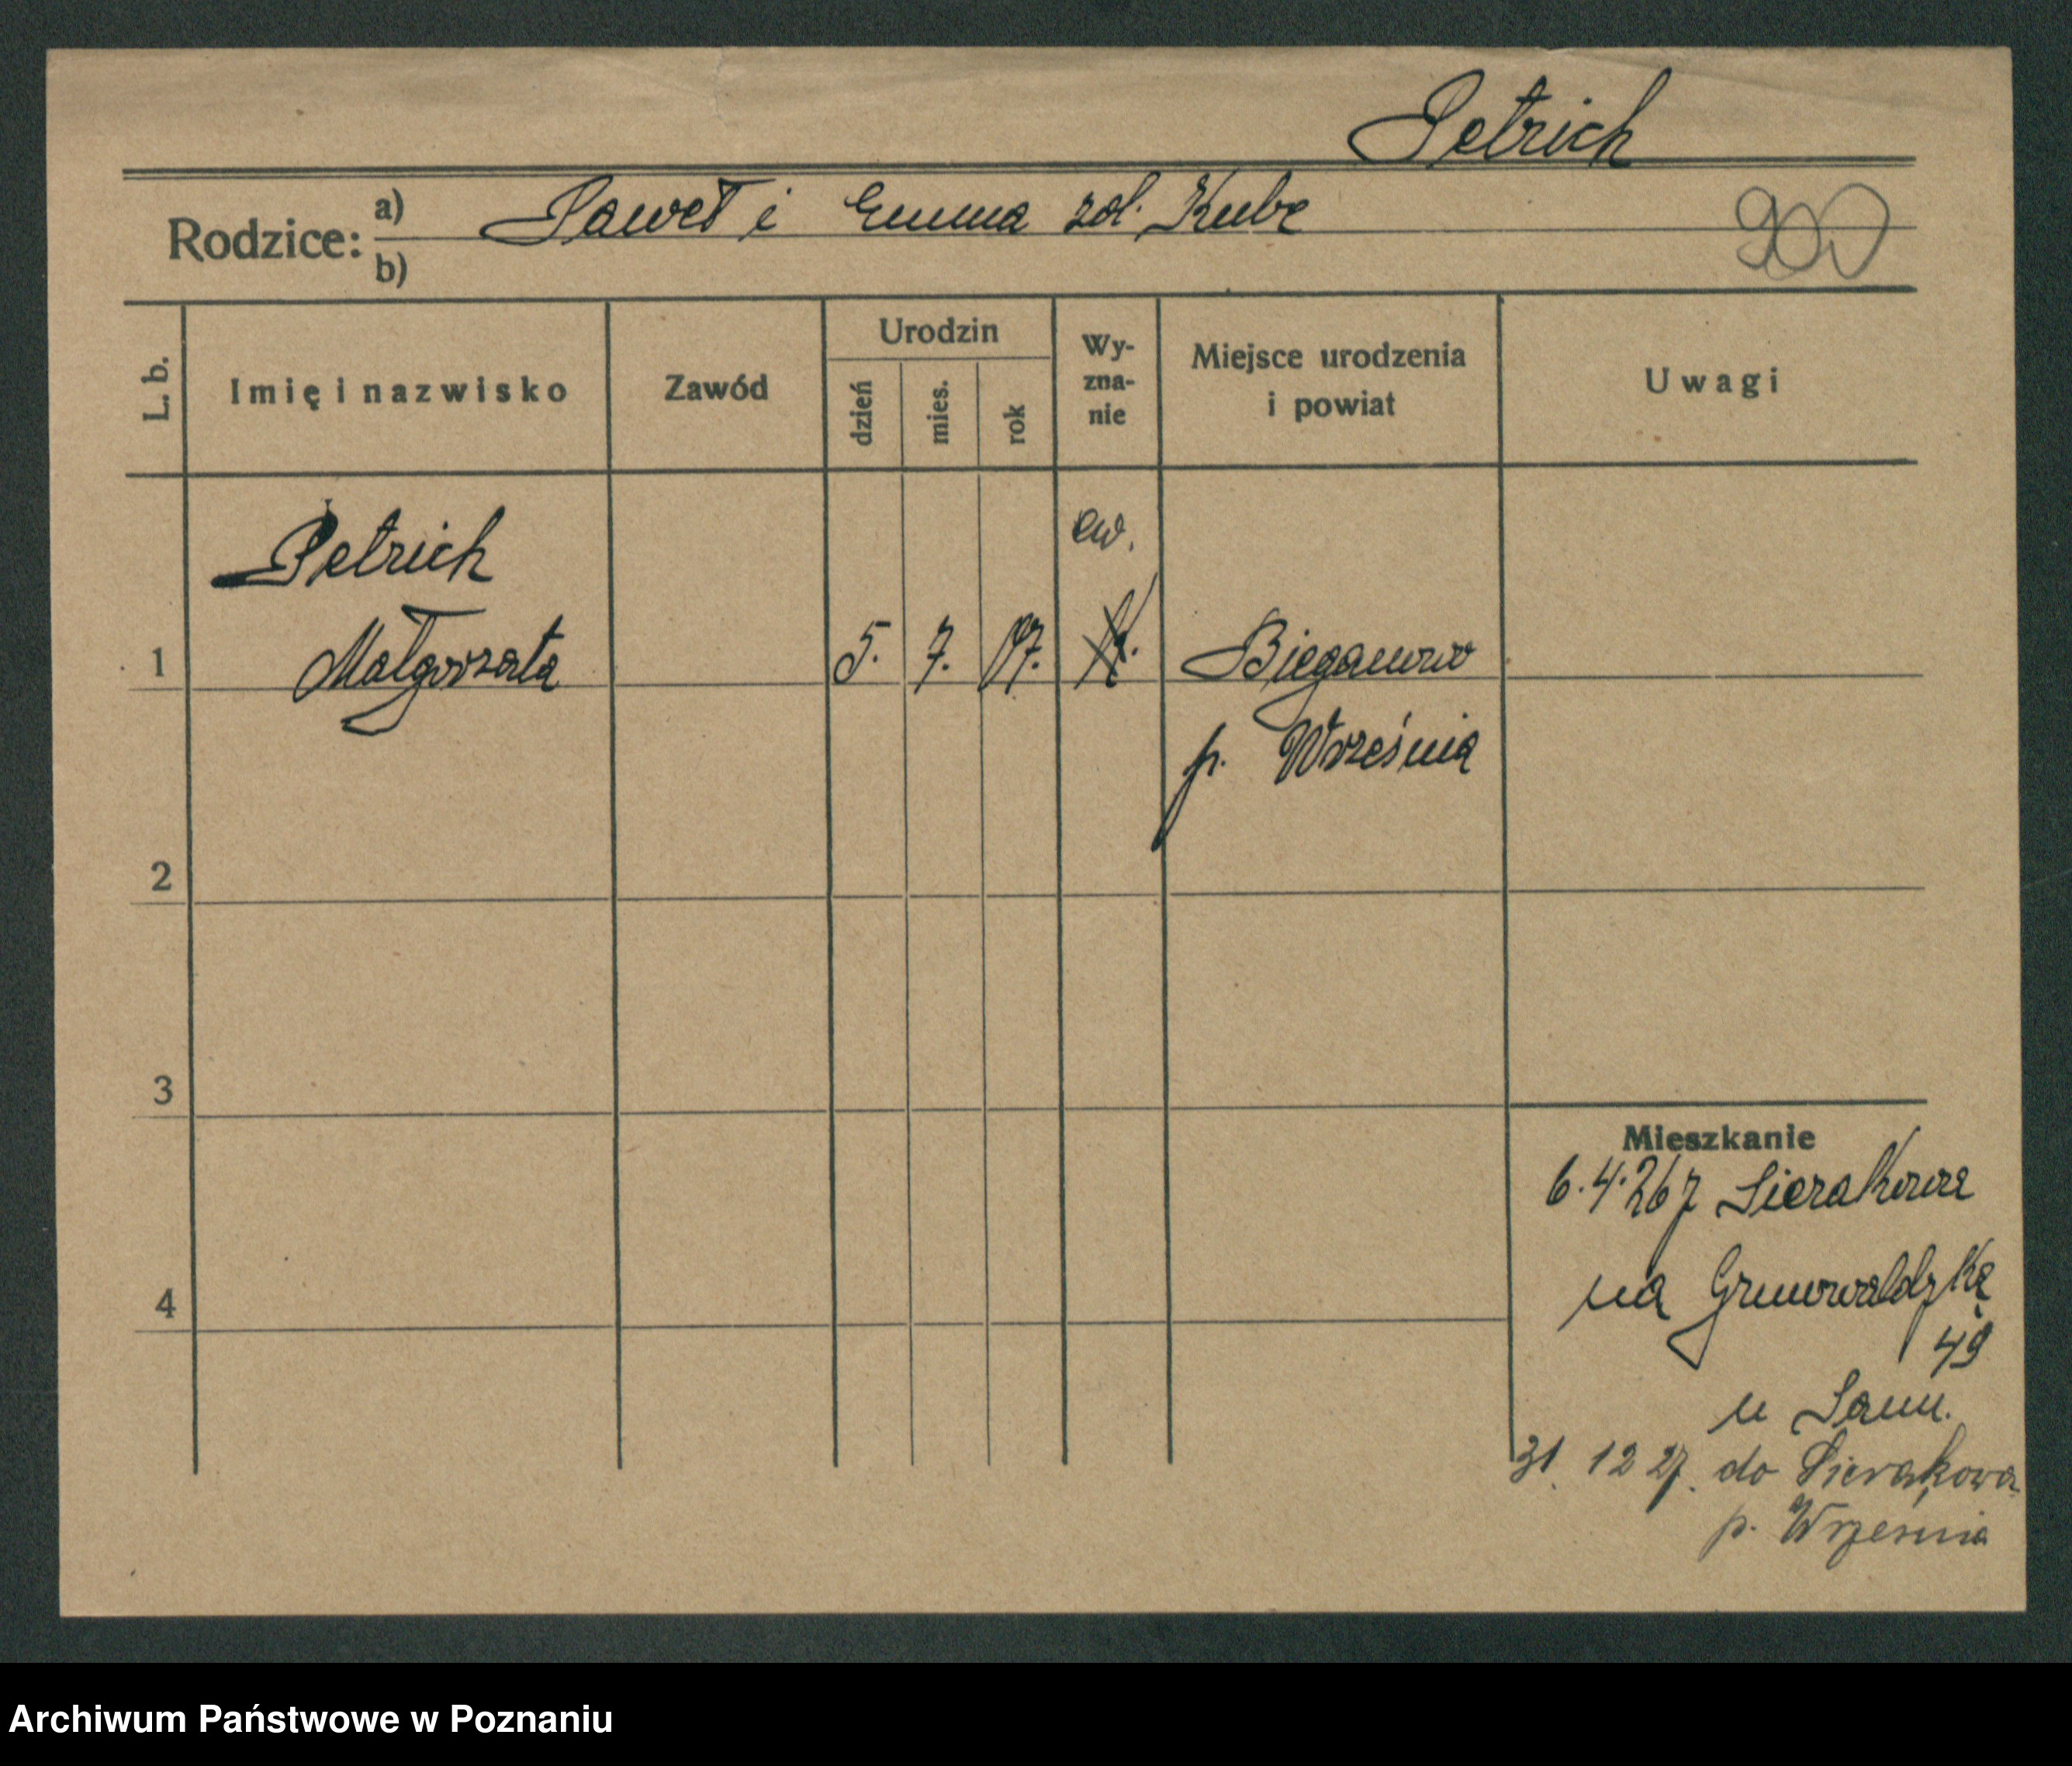 Petrich
Rodzice: a) Paweł i Emma zd. Kube
b)
L. b. Imię i nazwisko Zawód Urodzin dzień mies. rok Wy-zna-nie Miejsce urodzenia i powiat Uwagi
Petrich ew.
1 Małgorzata 5. 7. 07. Bieganowo
p. Września
2
3
Mieszkanie
6.4.26 z Sierakowa
4 na Grunwaldzką
49
u Samu.
31. 12 27. do Sierakowa
p. Wrzesnia
Archiwum Państwowe w Poznaniu